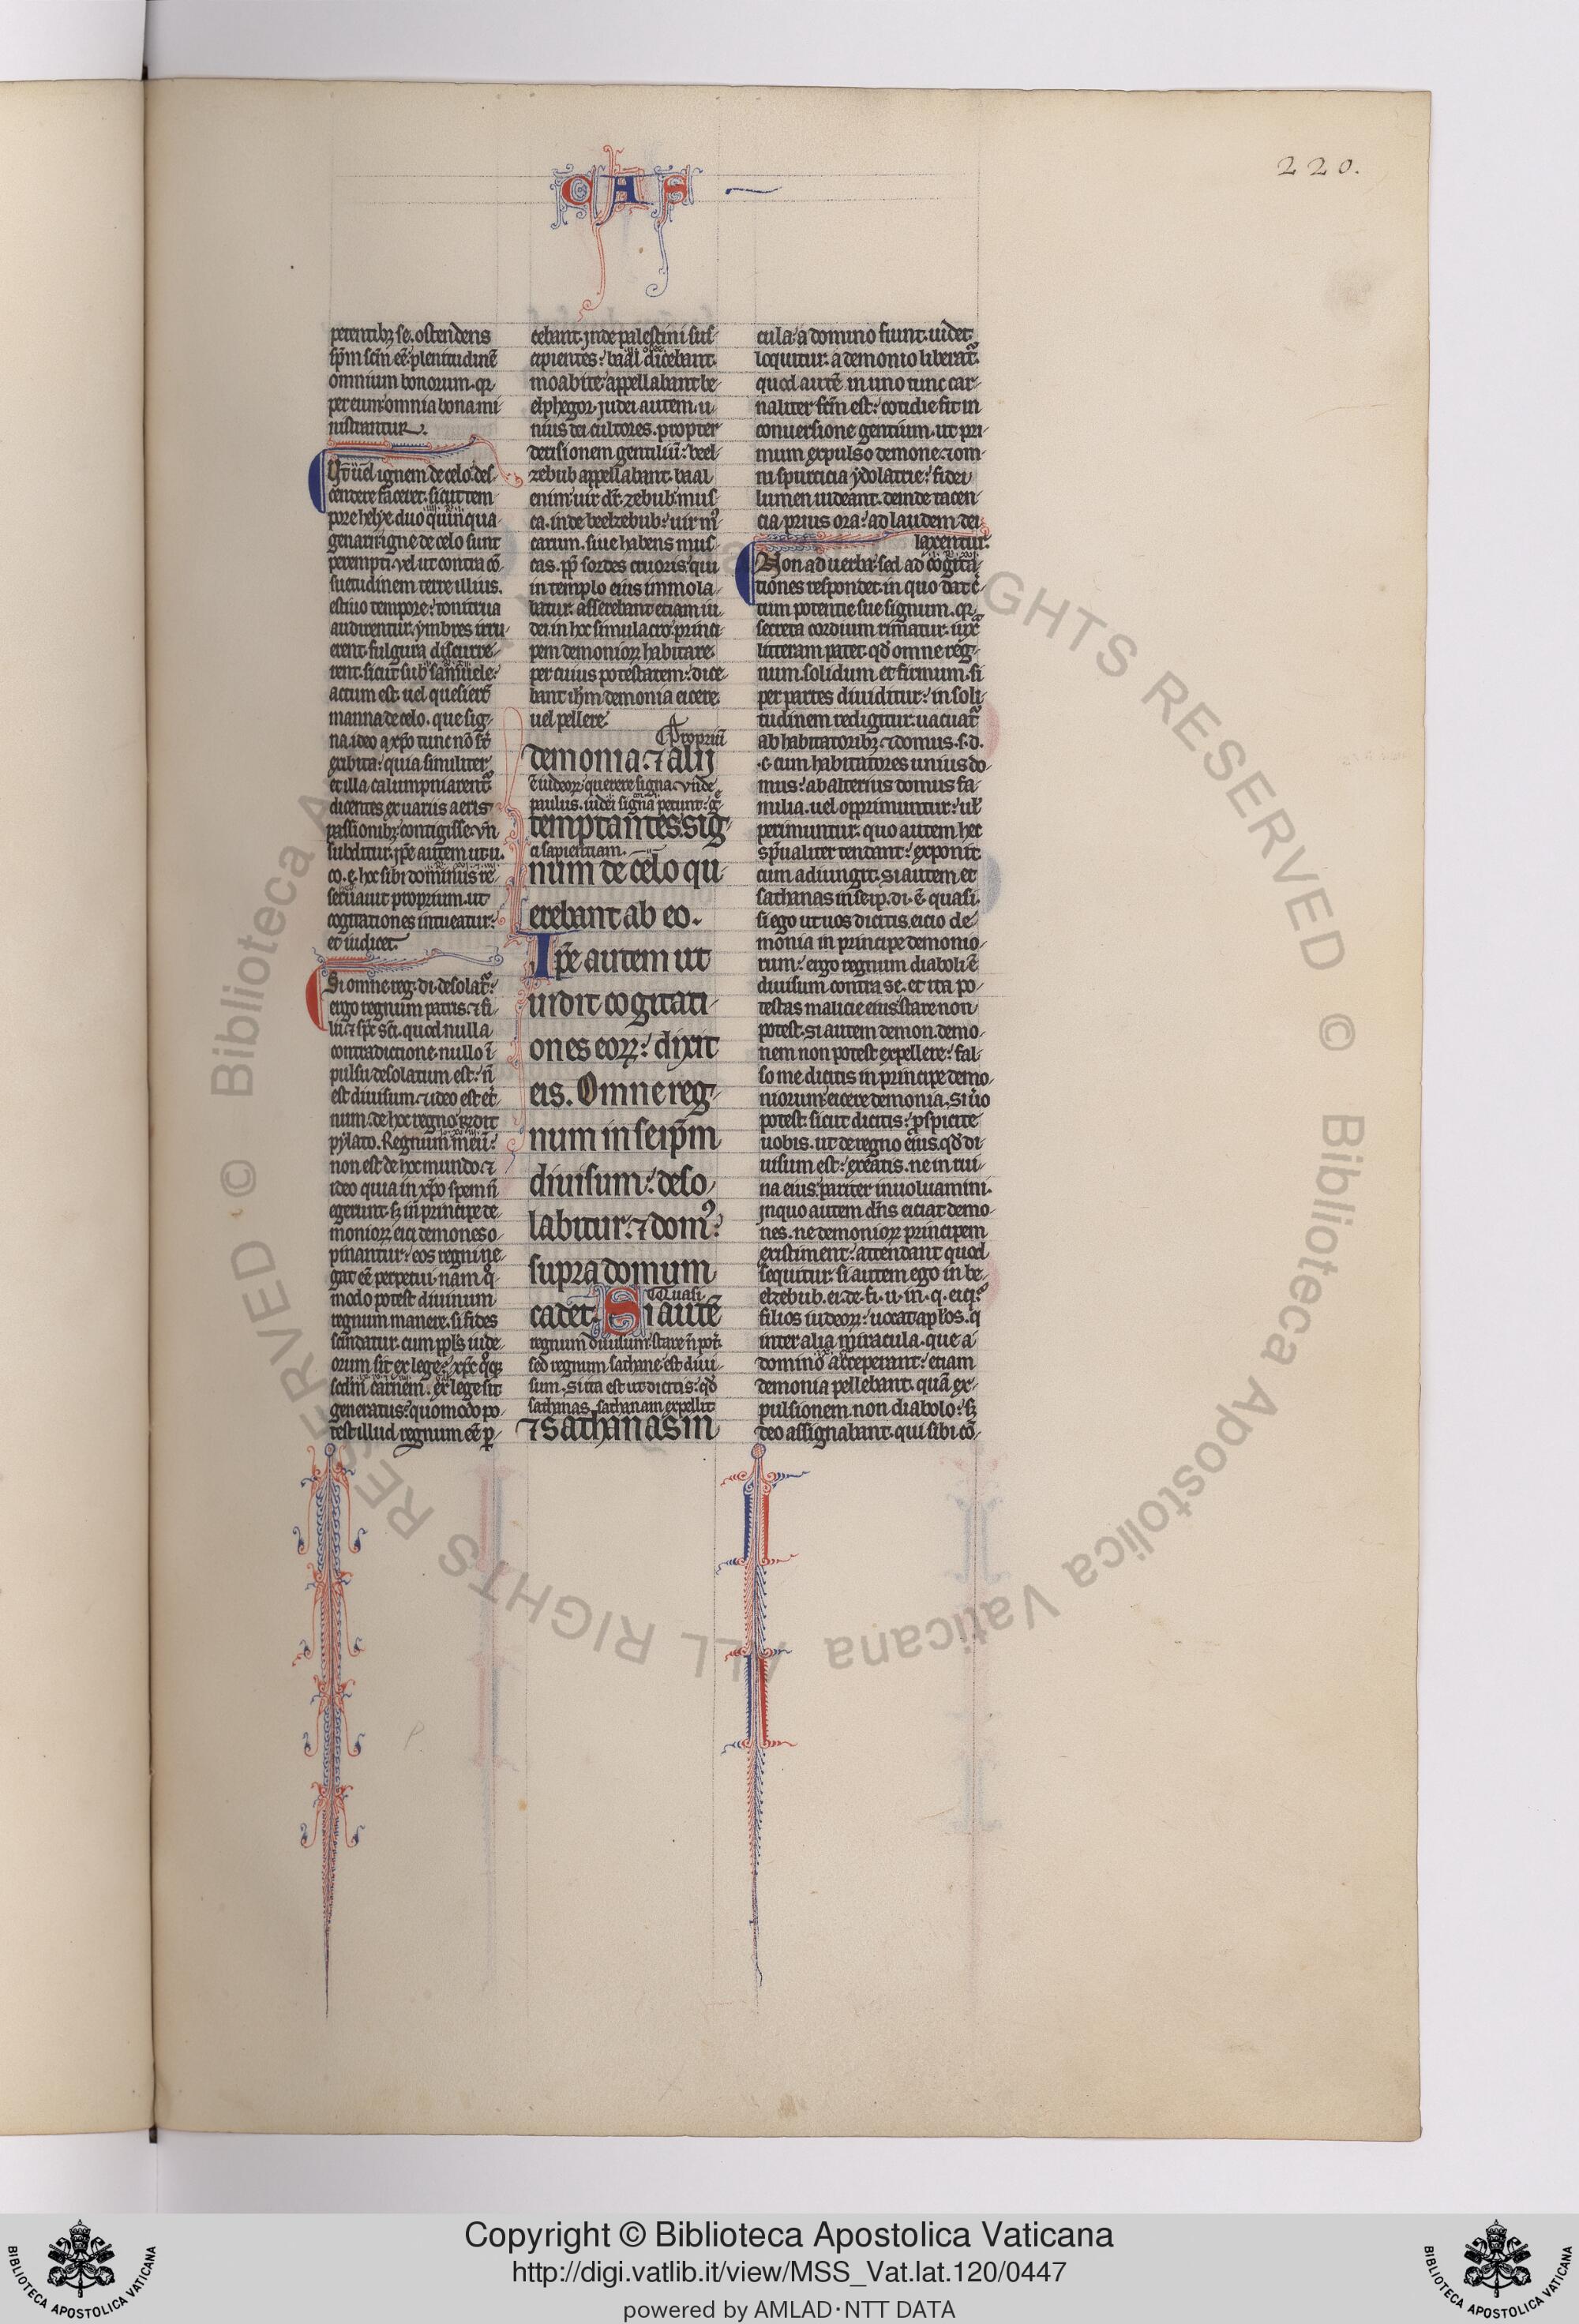 CAS
220.
petentibꝫ se. ostendens
sp̄m sc̄m eē plenitudinē
omnium bonorum. qr
per eum omnia bona mi
nistrantur.
ignem de celo des
cendere faceret. sicut tem
pore helye duo quinqua
genarii igne de celo sunt
perempti. vel ut contra cō
suetudinem terre illius.
estiuo tempore tonitrua
audirentur. ymbres irru
erent. fulgura discurre
rent. sicut sub samuele
actum est. uel quesierūt
manna de celo. que sig
na. ideo a xp̄o tunc nō sūt
exibita: quia similiter
et illa calumpniarent᷑
dicentes ex uariis aeris
passionibꝫ contigisse. vn̄
subditur. ip̄e autem ut u.
co. e. hoc sibi dominus re
seruauit proprium. ut
cogitationes intueatur.
et iudicet.
Si omne reg. di. desolat᷑.
ergo regnum patris. ⁊ fi
lii ⁊ sp̄c sc̄i. quod nulla
contradictione. nullo ī
pulsu desolatum est: n̄
est diuisum. ⁊ ideo est et̄
num. de hoc regno
pylato. Regnum meū:
non est de hoc mundo. ⁊
ideo quia in xp̄o spem n̄
egerunt. sꝫ in principe de
monioꝝ eici demones o
pinantur: eos regni ne
gat eē perpetui. nam qͦ
modo potest diuinum
regnum manere. si fides
scindatur. cum pp̄ls iude
orum sit ex lege: xp̄c qͦqꝫ
scdm carnem. ex lege sit
generatus: quomodo po
test illud regnum eē ꝑ
cebant. inde palestini sus
cipientes: baal dicebant.
moabite appellabant be
elphegor. iudei autem. u
nius dei cultores. propter
derisionem gentiliū: beel
zebub appellabant. baal
enim: uir dr̄. zebub: mus
ca. inde beelzebub: uir mꝰ
carum. siue habens mus
cas. pp̄ sordes cruoris qui
in templo eius immola
batur. asserebant etiam iu
dei in hoc simulacro princi
pem demonioꝝ habitare.
per cuius potestatem: dice
bant ihm demonia eicere
uel pellere.
Propriū
demonia. ⁊ alij
ē iudeoꝝ querere signa. vnde
paulus. iudei signa petunt. gͤ
temptantes sig
ci sapientiam.
num de celo qu
erebant ab eo.
Ip̄e autem ut
uidit cogitati
ones eoꝝ: dixit
eis. Omne reg
num in seip̄m
diuisum: deso
labitur: ⁊ domꝰ
supra domum
Quasi
cadet. Si autē
regnum diuisum. stare n̄ potͭ.
sed regnum sathane est diui
sum. si ita est ut dicitis: qd̄
sathanas. sathanam expellit
⁊ sathanas in
cula: a domino fiunt. uidet.
loquitur. a demonio liberat᷑.
quod autē in uno tunc car
naliter fc̄m est: cotidie fit in
conuersione gentium. ut pri
mum expulso demone. ⁊ om
ni spurcicia ydolatrie: fidei
lumen uideant. deinde tacen
cia prius ora: ad laudem dei
laxentur.
Non ad uerba: sed ad cogita
tiones respondet. in quo dat ē
tum potentie sue signum. qr
secreta cordium rimatur. iuxͣ
litteram patet. qd̄ omne reg
num. solidum et firmum. si
per partes diuiditur: in soli
tudinem redigitur. uacuat᷑
ab habitatoribꝫ. ⁊ domus. s. d.
c. cum habitatores unius do
mus: ab alterius domus fa
milia. uel opprimuntur: ul̄
perimuntur. quo autem hec
sp̄ualiter tendant: exponit
cum adiungit. si autem et
sathanas in seip. di. ē. quasi.
si ego ut uos dicitis. eicio de
monia in principe demonio
rum: ergo regnum diaboli ē
diuisum contra se. et ita po
testas malicie eius stare non
potest. si autem demon. demo
nem non potest expellere: fal
so me dicitis in principe demo
niorum eicere demonia. Si uͦo
potest sicut dicitis: ꝓspicite
uobis. ut de regno eius. qd̄ di
uisum est: exeatis. ne in rui
na eius pariter inuoluamini.
in quo autem dn̄s eiciat demo
nes. ne demonioꝝ principem
existiment: attendant quod
sequitur. si autem ego in be
elzebub. ei. de. fi. u. in. q. eici.
filios iudeoꝝ: uocat ap̄los. q
inter alia miracula. que a
domino acceperant: etiam
demonia pellebant. quā ex
pulsionem. non diabolo: sꝫ
deo assignabant. qui sibi cō
Copyright © Biblioteca Apostolica Vaticana
http://digi.vatlib.it/view/MSS_Vat.lat.120/0447
powered by AMLAD·NTT DATA
BIBLIOTECA APOSTOLICA VATICANA
BIBLIOTECA APOSTOLICA VATICANA
© Biblioteca Apostolica Vaticana ALL RIGHTS RESERVED
© Biblioteca Apostolica Vaticana ALL RIGHTS RESERVED